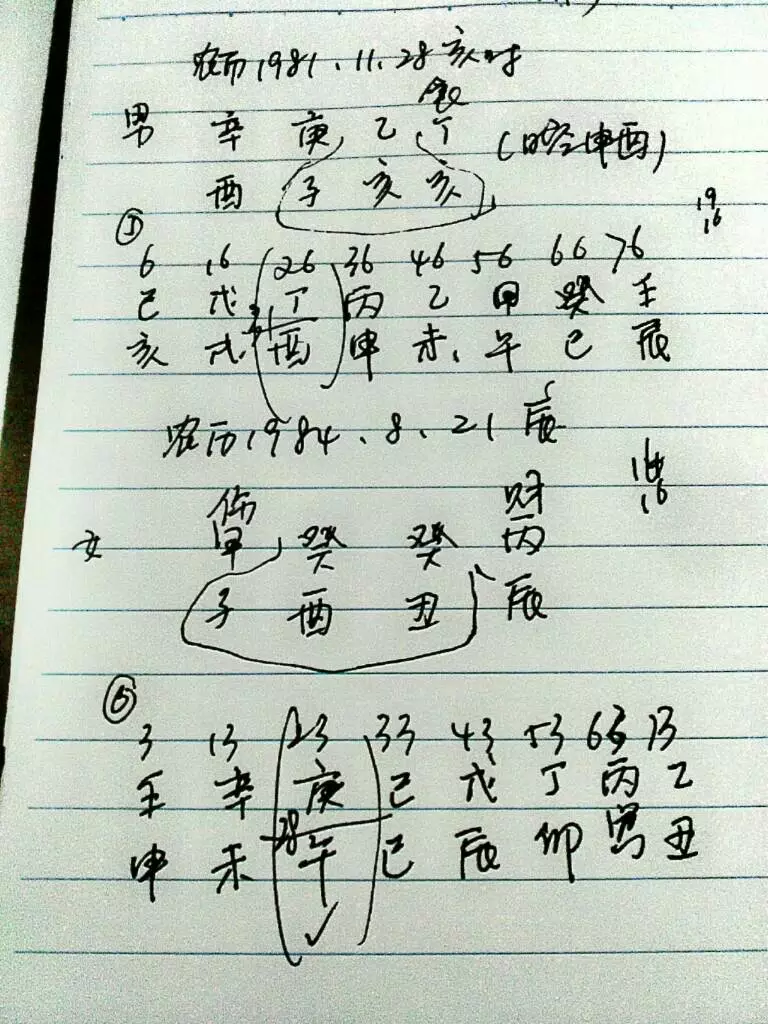 农历1981、11、28亥时
食
男 辛 庚 乙 丁 (时空申酉)
酉 子 亥 亥
①
19
16
6 16 26 36 46 56 66 76
己 戊 丁 丙 乙 甲 癸 壬
31
亥 戌 酉 申 未 午 巳 辰
农历1984、8、21辰
伤 财
16
女 甲 癸 癸 丙
子 酉 丑 辰
⑥
3 13 23 33 43 53 63 73
壬 辛 庚 己 戊 丁 丙 乙
28
申 未 午 巳 辰 卯 寅 丑